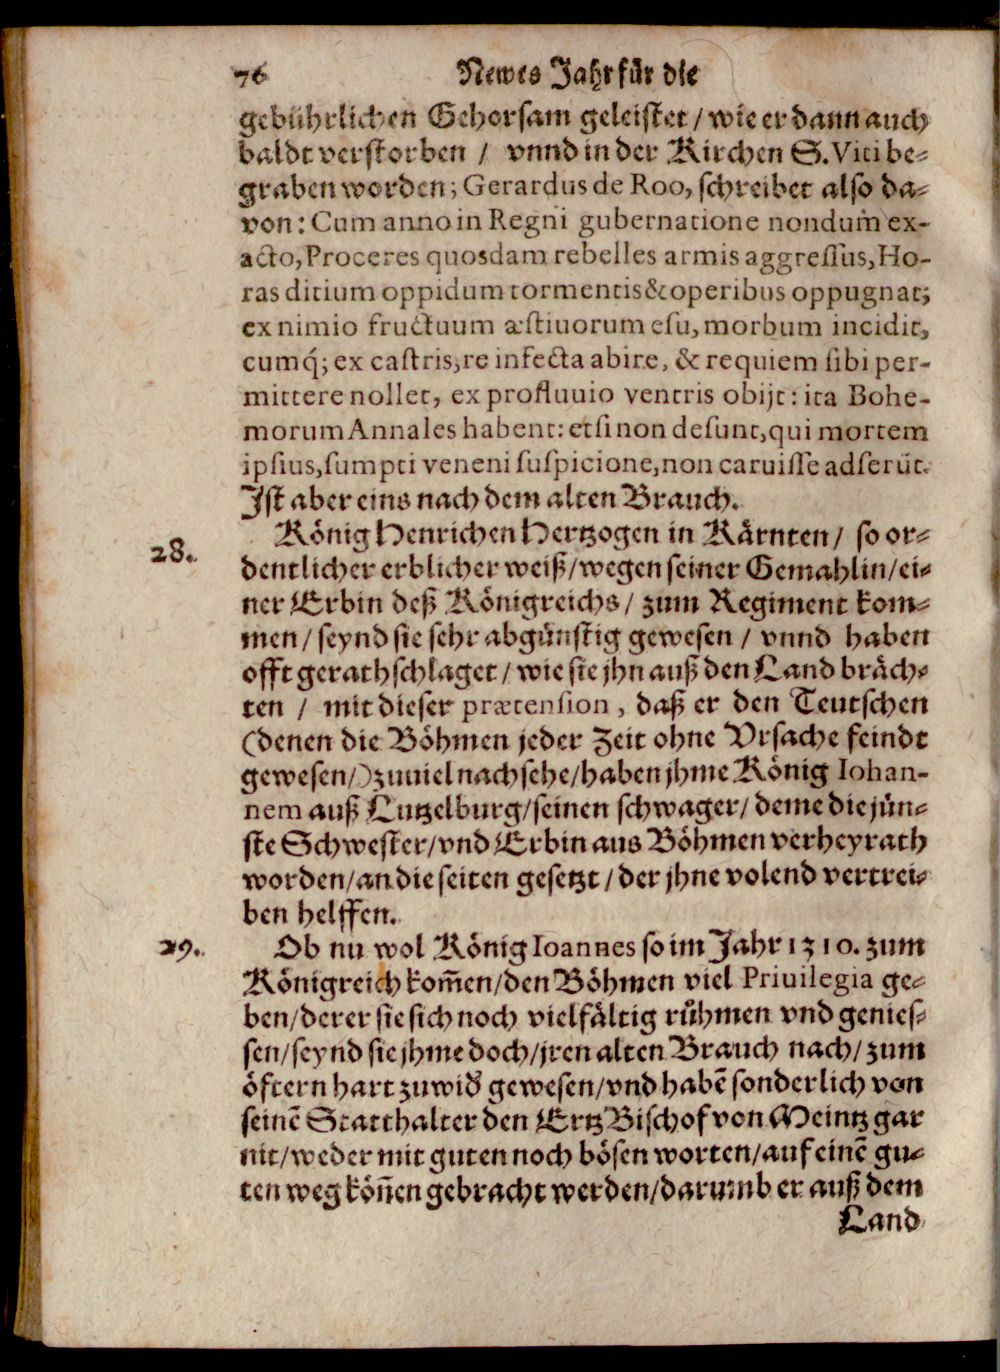 76 Newes Jahr für die
gebührlichen Gehorsam geleistet / wie er dann auch
baldt verstorben / vnnd in der Kirchen S. Viti be-
graben worden; Gerardus de Roo, schreibet also da-
von: Cum anno in Regni gubernatione nondum ex-
acto, Proceres quosdam rebelles armis aggressus, Ho-
ras ditium oppidum tormentis & operibus oppugnat;
ex nimio fructuum æstiuorum esu, morbum incidit,
cumq́; ex castris, re infecta abire, & requiem sibi per-
mittere nollet, ex profluuio ventris obijt: ita Bohe-
morum Annales habent: etsi non desunt, qui mortem
ipsius, sumpti veneni suspicione, non caruisse adserūt.
Ist aber eins nach dem alten Brauch.
28. König Henrichen Hertzogen in Kärnten / so or-
dentlicher erblicher weiß / wegen seiner Gemahlin / ei-
ner Erbin deß Königreichs / zum Regiment kom-
men / seynd sie sehr abgünstig gewesen / vnnd haben
offt gerathschlaget / wie sie jhn auß den Land bräch-
ten / mit dieser prætension, daß er den Teutschen
(denen die Böhmen jeder Zeit ohne Vrsache feindt
gewesen /) zuuiel nachsehe / haben jhme König Iohan-
nem auß Lutzelburg / seinen schwager / deme die jün-
ste Schwester / vnd Erbin aus Böhmen verheyrath
worden / an die seiten gesetzt / der jhne volend vertrei-
ben helffen.
29. Ob nu wol König Ioannes so im Jahr 1310. zum
Königreich kom̄en / den Böhmen viel Priuilegia ge-
ben / derer sie sich noch vielfältig rühmen vnd genies-
sen / seynd sie jhme doch / jren alten Brauch nach / zum
öftern hart zuwid' gewesen / vnd habē sonderlich von
seinē Statthalter den Ertz Bischof von Meintz gar
nit / weder mit guten noch bösen worten / auf einē gu-
ten weg kön̄en gebracht werden / darumb er auß dem
Land